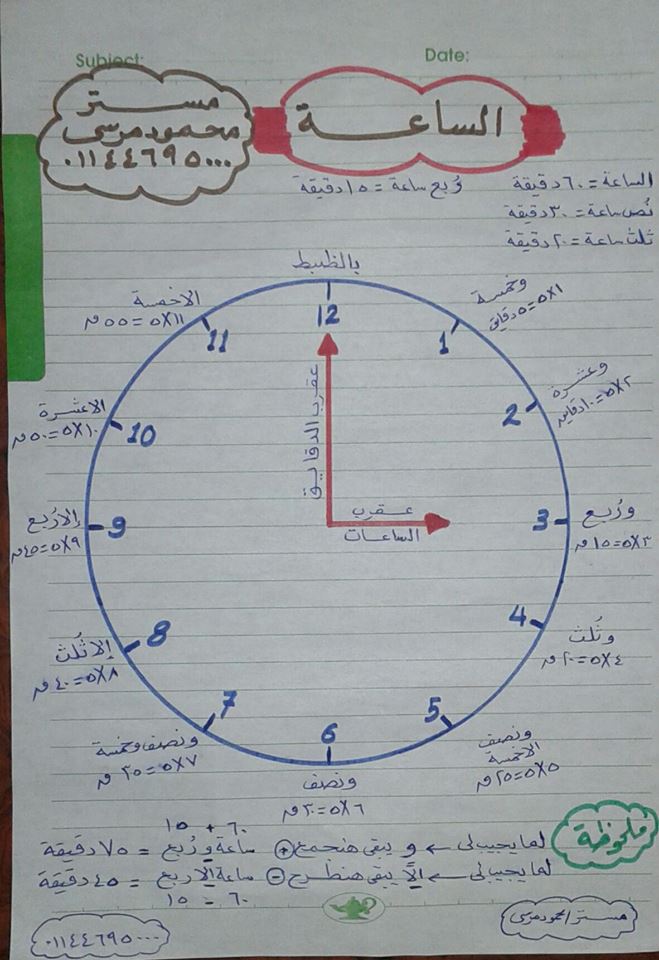 Subject:
Date:
مستر
محمود مرسى
٠١١٤٤٦٩٥٠٠٠
الساعة
الساعة = ٦٠ دقيقة
رُبع ساعة = ١٥ دقيقة
نُص ساعة = ٣٠ دقيقة
ثلث ساعة = ٢٠ دقيقة
بالظبط
12
وخمسة
١×٥=٥ دقايق
1
وعشرة
٢×٥=١٠ دقايق
2
ورُبع
٣×٥=١٥ م
3
وثُلث
٤×٥=٢٠ م
4
ونصف
الاخمسة
٥×٥=٢٥ م
5
ونصف
٦×٥=٣٠ م
6
ونصف وخمسة
٧×٥=٣٥ م
7
إلا ثُلث
٨×٥=٤٠ م
8
إلا رُبع
٩×٥=٤٥ م
9
الاعشرة
١٠×٥=٥٠ م
10
الاخمسة
١١×٥=٥٥ م
11
عقرب الدقايق
عقرب
الساعات
ملحوظة
٦٠ + ١٥
لما يجيب لى ← و يبقى هنجمع + ساعة و رُبع = ٧٥ دقيقة
لما يجيب لى ← إلاَّ يبقى هنطرح - ساعة إلا ربع = ٤٥ دقيقة
٦٠ - ١٥
مستر / محمود مرسى
٠١١٤٤٦٩٥٠٠٠